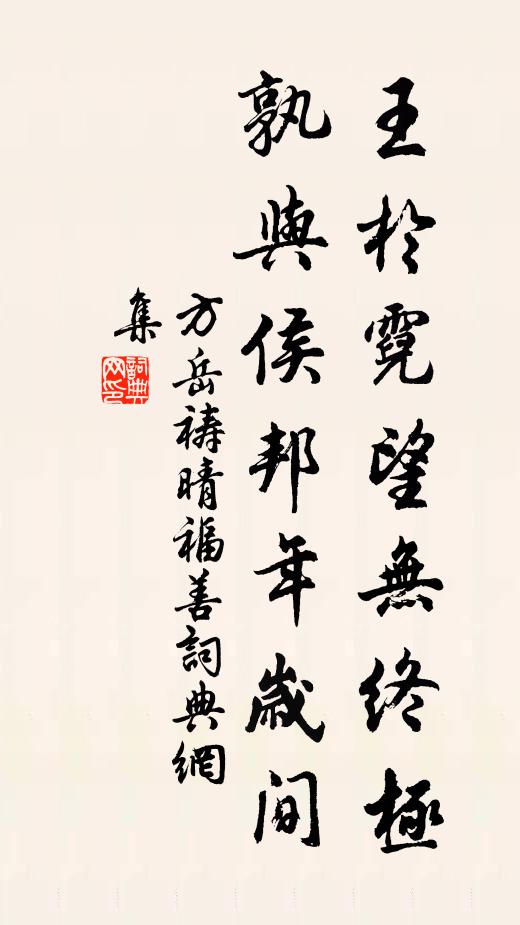 王於霓望無終極
孰與侯邦年歲間
方岳禱晴福善詞典網
集
詞典網印